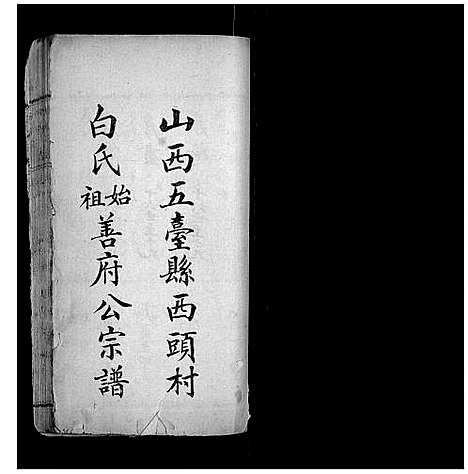 山西五臺縣西頭村
白氏始祖善府公宗譜